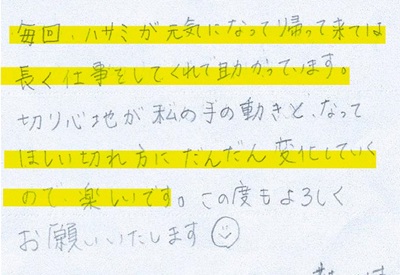 毎回、ハサミが元気になって帰って来ては
長く仕事をしてくれて助かっています。
切り心地が私の手の動きと、なって
ほしい切れ方にだんだん変化していく
ので、楽しいです。この度もよろしく
お願いいたします